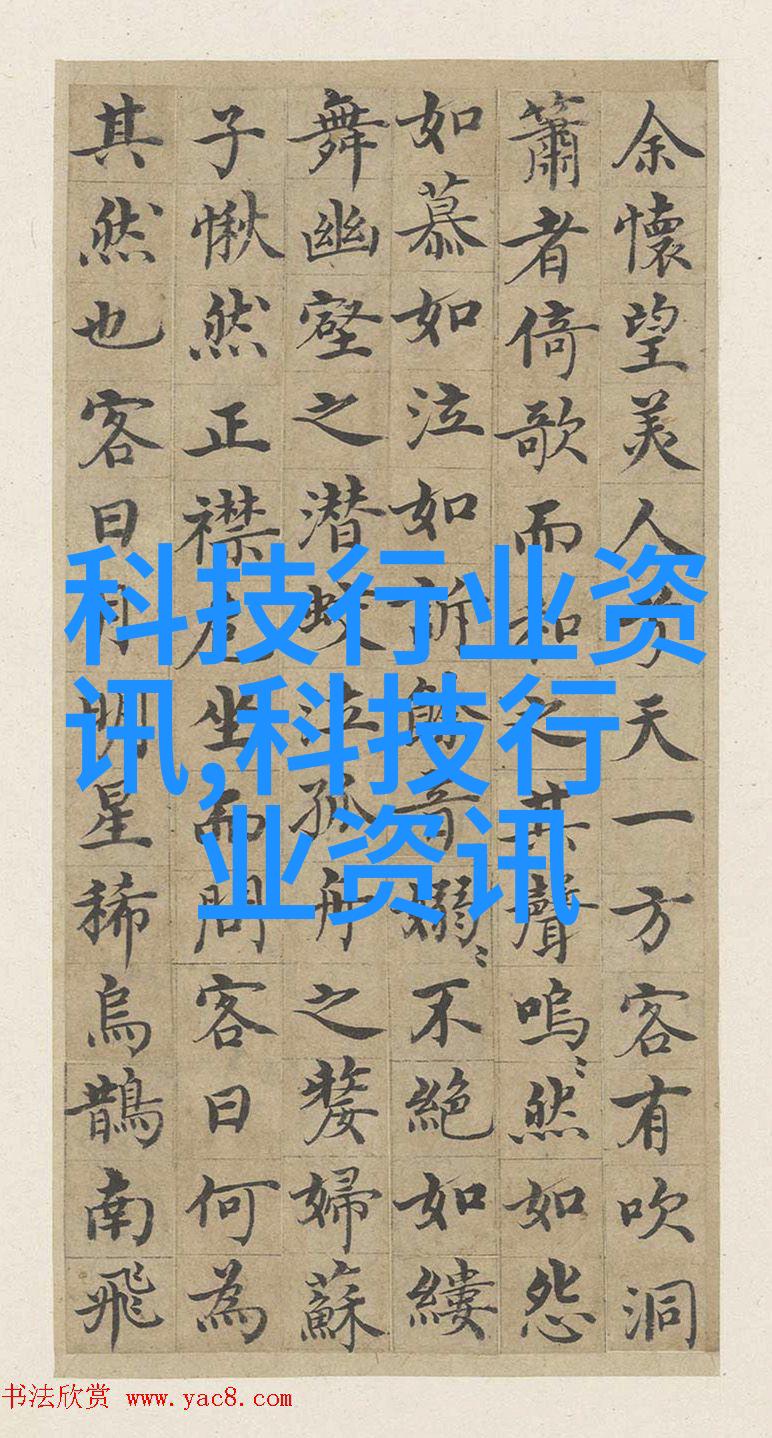 余懷望美人兮天一方客有吹洞
簫者倚歌而和之其聲嗚〻然如怨
如慕如泣如訴餘音嫋〻不絶如縷
舞幽壑之潜蛟泣孤舟之嫠婦蘇
子愀然正襟危坐而問客曰何為
其然也客曰月明星稀烏鵲南飛
科技行业资
讯,科技行
业资讯
书法欣赏 www.yac8.com